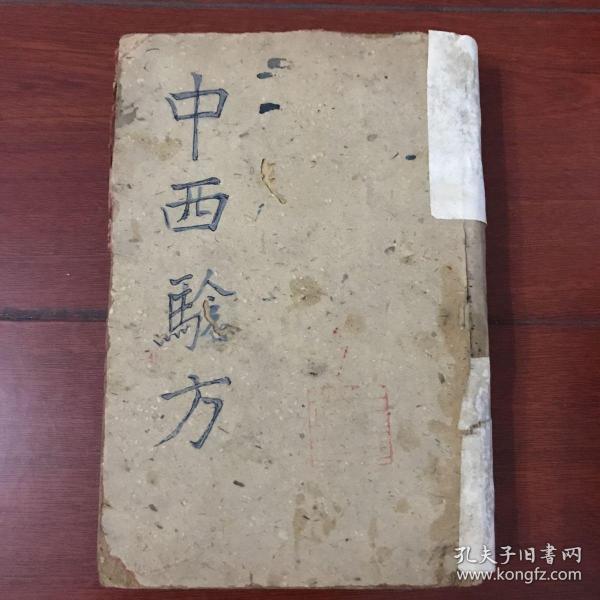 中西驗方
孔夫子旧书网
www.kongfz.com